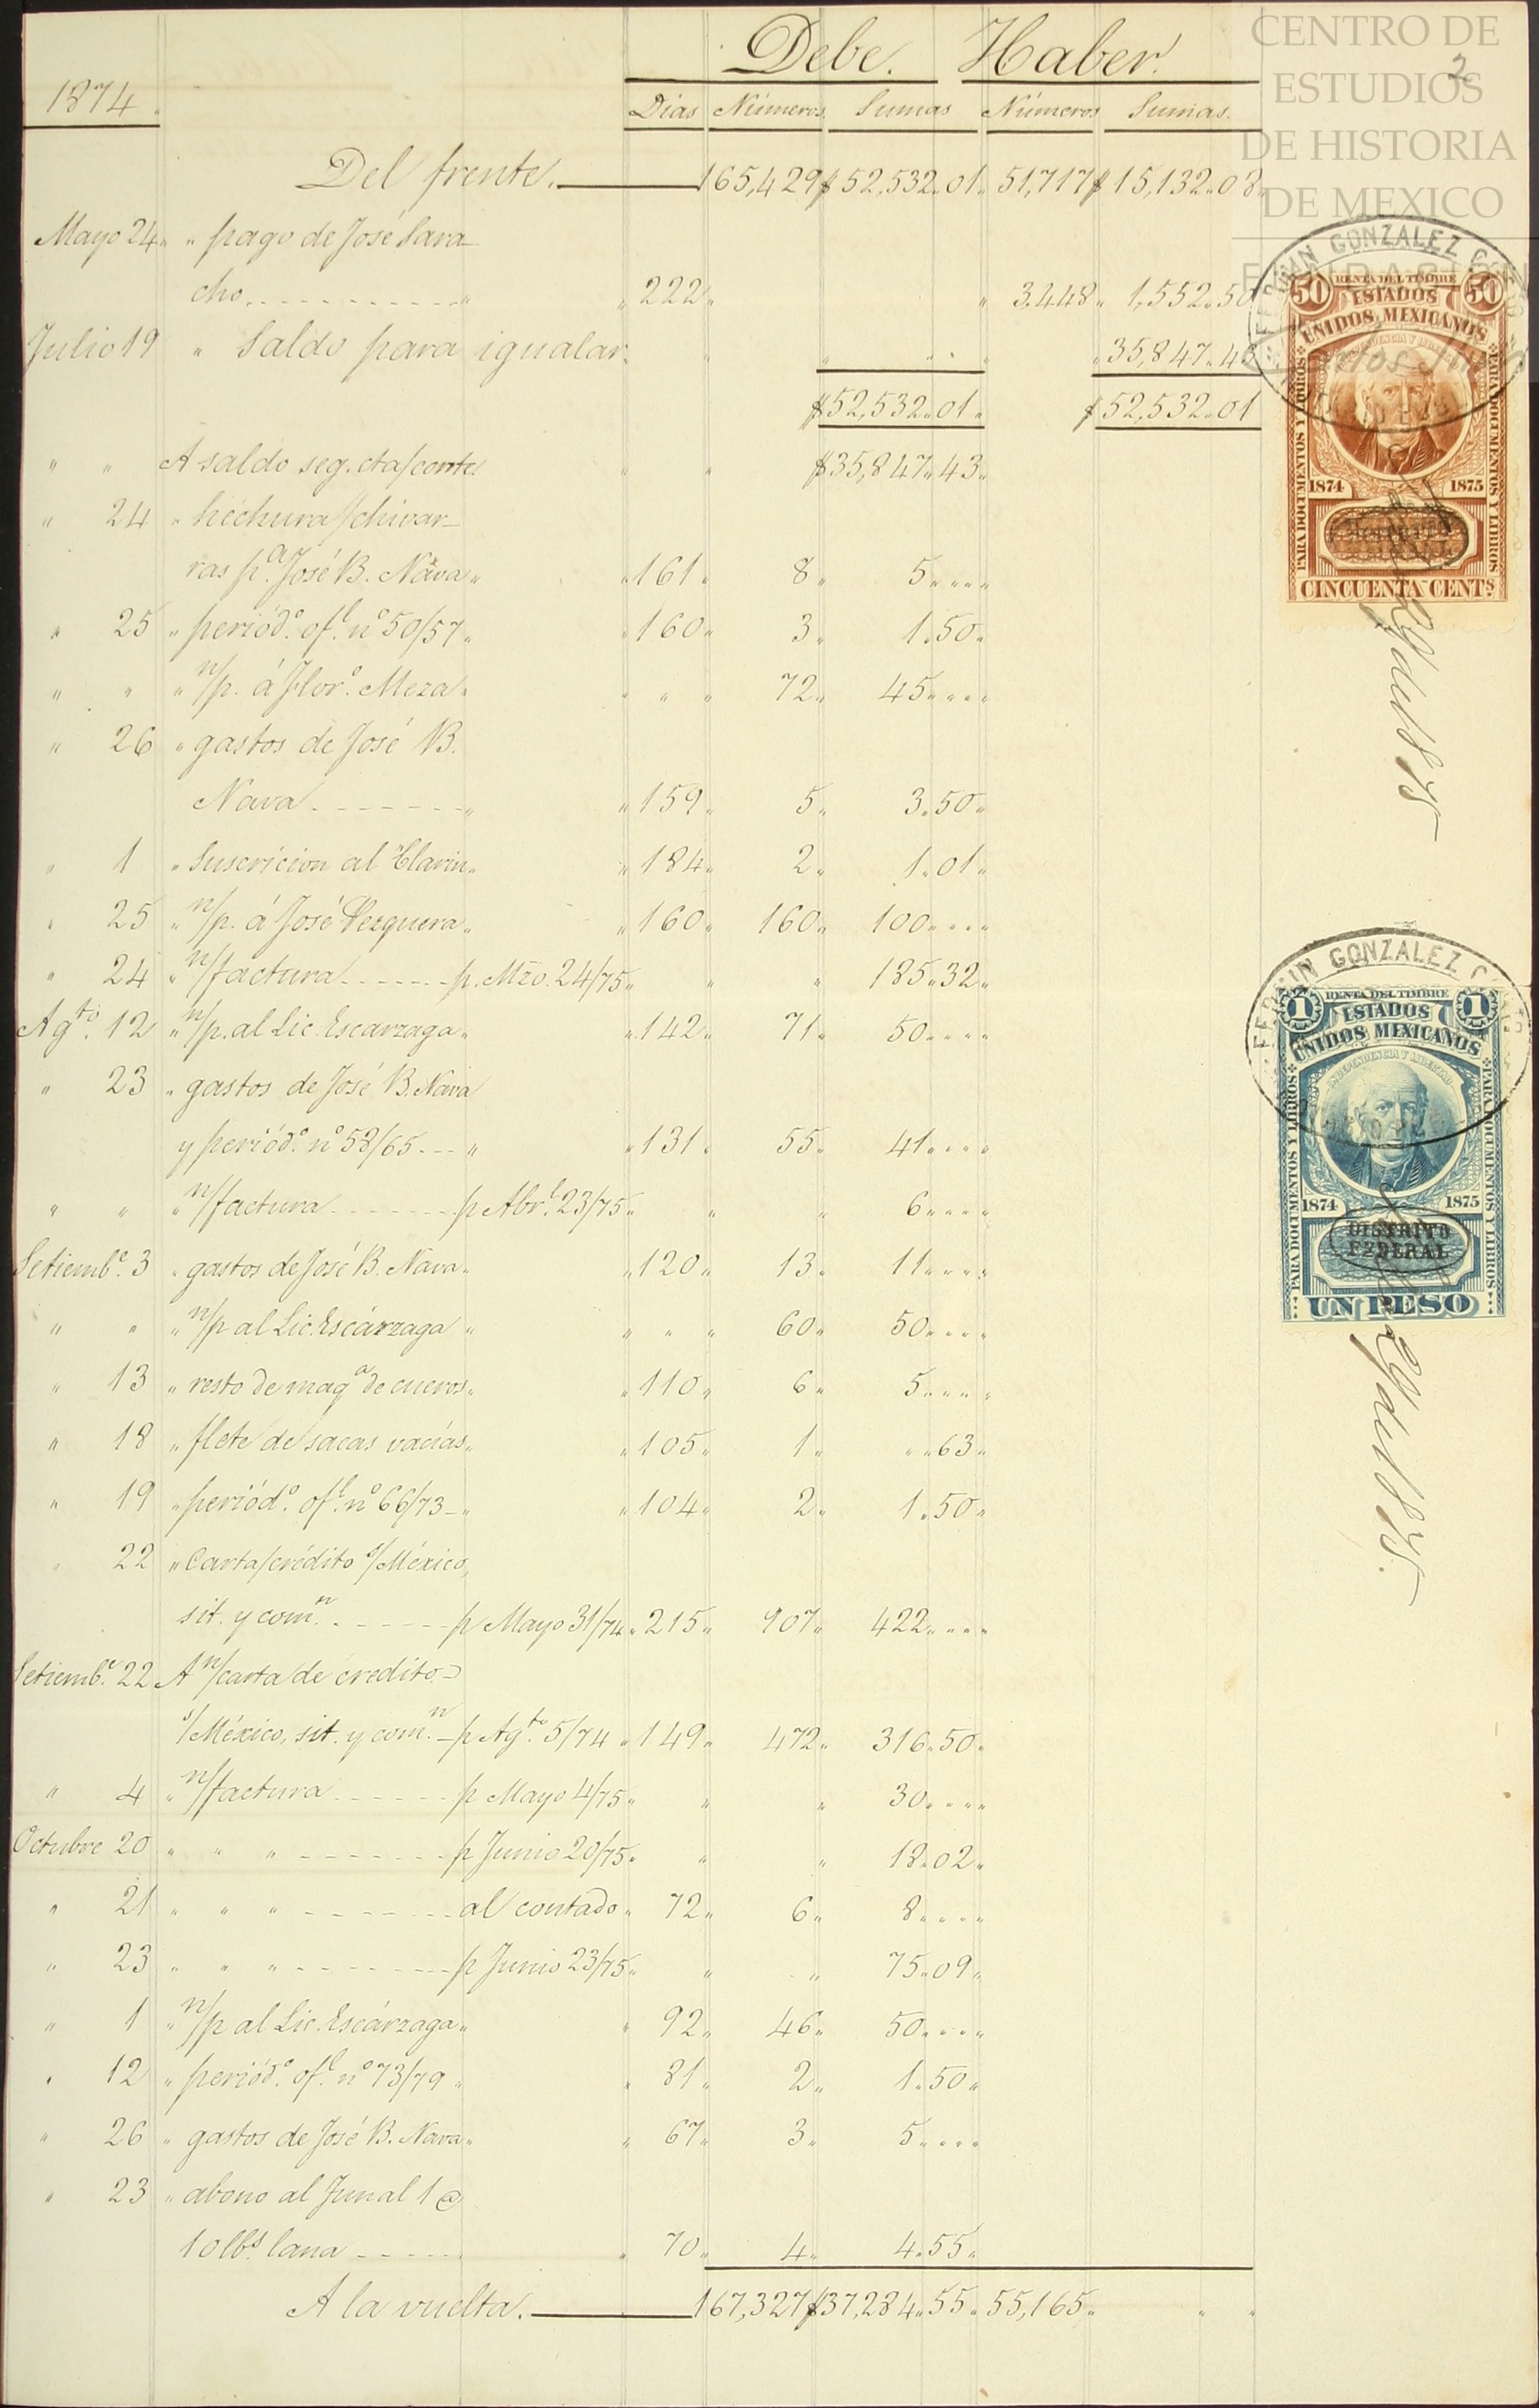 CENTRO DE
ESTUDIOS
DE HISTORIA
DE MEXICO
2
Debe. Haber.
1874. Días Números Sumas Números Sumas.
Del frente. 165,429 $52,532.01 51,717 $15,132.08
Mayo 24 " " pago de José Sara-
cho " " 222 " " 3.448 " 1,552.50
Julio 19 " Saldo para igualar. " " " " " 35,847.43
$52,532.01 " $52,532.01
" " A saldo seg. cta/corrte. " " $35,847.43
" 24 " hechura/chivar-
ras pa. José B. Nava " " 161 " 8 " 5 " " " "
" 25 " periódo. ofl. no 50/57 " " 160 " 3 " 1.50 "
" " " n/p. á Floro. Meza " " " " 72 " 45 " " " "
" 26 " gastos de José B.
Nava " " 159 " 5 " 3.50 "
" 1 " Suscricion al "Clarin " " 184 " 2 " 1.01 "
" 25 " n/p. á José Vezquera " " 160 " 160 " 100 " " " "
" 24 " n/factura p. Mzo. 24/75 " " " 185.32 "
Agto. 12 " n/p. al Lic. Escárzaga " " 142 " 71 " 50 " " " "
" 23 " gastos de José B. Nava
y periódo. no 58/65 " " 131 " 55 " 41 " " " "
" " " n/factura p Abrl. 23/75 " " " 6 " " " "
Setiembe. 3 " gastos de José B. Nava " " 120 " 13 " 11 " " " "
" " " n/p al Lic. Escárzaga " " " " 60 " 50 " " " "
" 13 " resto de maqa de cueros " " 110 " 6 " 5 " " " "
" 18 " flete de sacas vacías " " 105 " 1 " " " 63 "
" 19 " periódo. ofl. no 66/73 " " 104 " 2 " 1.50 "
" 22 " Carta/crédito s/México,
sit. y comn. p Mayo 31/74 " 215 " 907 " 422 " " " "
Setiembe. 22 A n/carta/de crédito
s/México, sit. y comn. p Agto. 5/74 " 149 " 472 " 316.50 "
" 4 " n/factura p Mayo 4/75 " " " 30 " " " "
Octubre 20 " " " p Junio 20/75 " " " 18.02 "
" 21 " " " al contado " 72 " 6 " 8 " " " "
" 23 " " " p Junio 23/75 " " " 75.09 "
" 1 " n/p al Lic. Escárzaga " " 92 " 46 " 50 " " " "
" 12 " periódo. ofl. no 73/79 " " 81 " 2 " 1.50 "
" 26 " gastos de José B. Nava " " 67 " 3 " 5 " " " "
" 23 " abono al Junal 1 @
10 lbs. lana " 70 " 4 " 4.55 "
A la vuelta. 167,327 $37,284.55 " 55,165 " " "
FERMIN GONZALEZ
50 RENTA DEL TIMBRE 50
ESTADOS
UNIDOS MEXICANOS
INDEPENDENCIA Y LIBERTAD
PARA DOCUMENTOS Y LIBROS
PARA DOCUMENTOS Y LIBROS
1874 1875
CINCUENTA CENTS.
1875
FERMIN GONZALEZ
1 RENTA DEL TIMBRE 1
ESTADOS
UNIDOS MEXICANOS
INDEPENDENCIA Y LIBERTAD
PARA DOCUMENTOS Y LIBROS
PARA DOCUMENTOS Y LIBROS
1874 1875
DISTRITO
FEDERAL
UN PESO
1875.